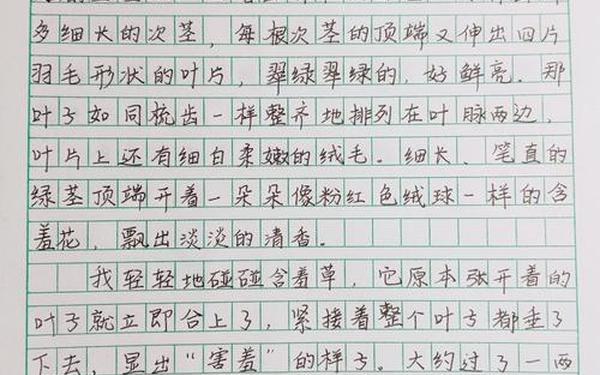 多细长的次茎，每根次茎的顶端又伸出四片
羽毛形状的叶片，翠绿翠绿的，好鲜亮。那
叶子如同梳齿一样整齐地排列在叶脉两边，
叶片上还有细白柔嫩的绒毛。细长、笔直的
绿茎顶端开着一朵朵像粉红色绒球一样的含
羞花，飘出淡淡的清香。
我轻轻地碰碰含羞草，它原本张开着的
叶子就立即合上了，紧接着整个叶子都垂了
下去，显出“害羞”的样子。大约过了一两